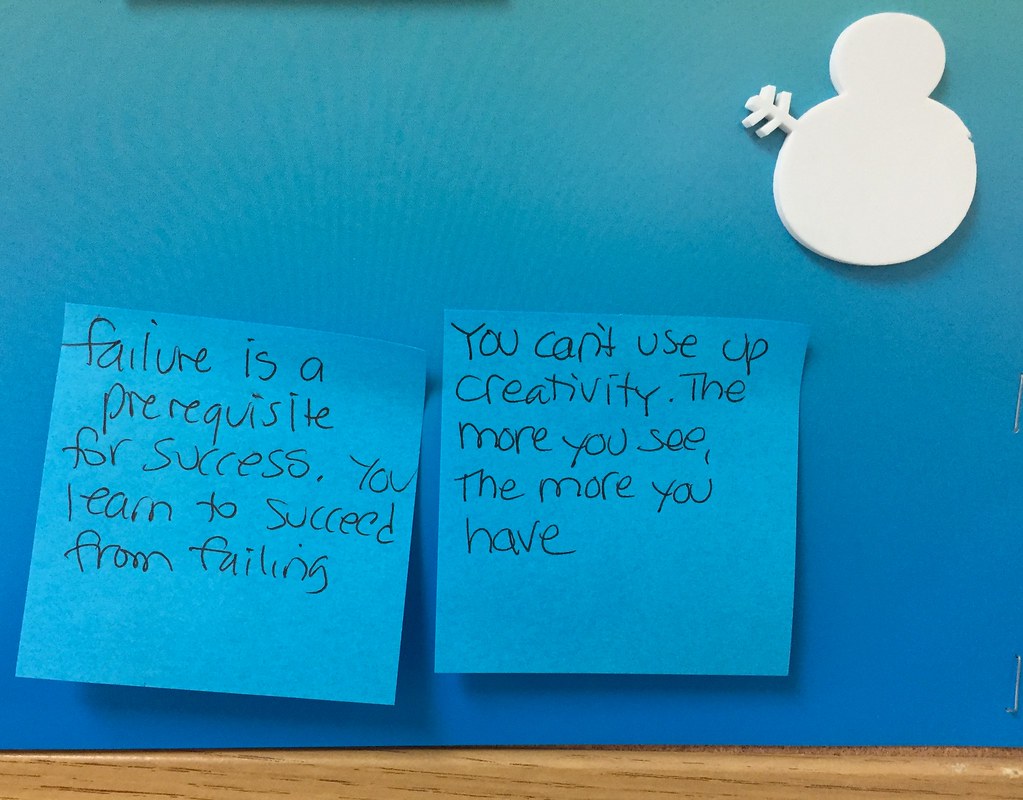 failure is a
prerequisite
for success. You
learn to succeed
from failing
You can't use up
creativity. The
more you see,
The more you
have